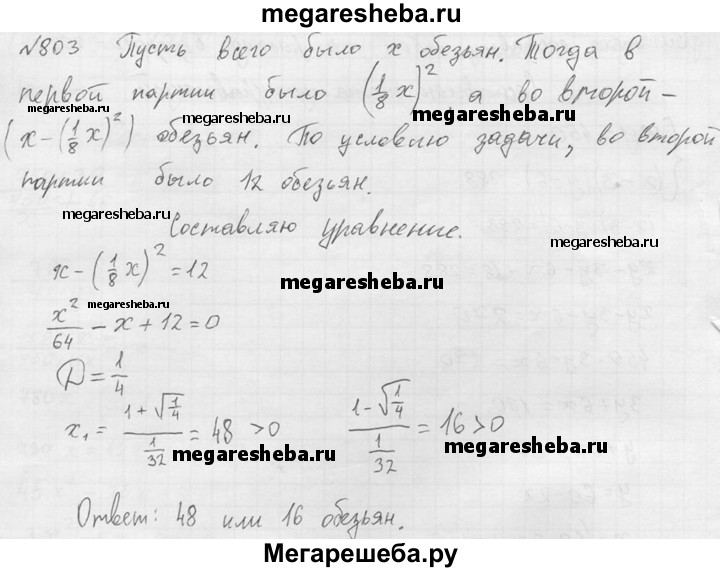 megaresheba.ru
№803 Пусть всего было x обезьян. Тогда в
первой партии было (1/8 x)² а во второй –
megaresheba.ru megaresheba.ru
(x – (1/8 x)²) обезьян. По условию задачи, во второй
megaresheba.ru
партии было 12 обезьян.
megaresheba.ru
Составляю уравнение.
megaresheba.ru
x – (1/8 x)² = 12
megaresheba.ru
megaresheba.ru
x²/64 – x + 12 = 0
D = 1/4
x₁ = (1 + √(1/4)) / (1/32) = 48 > 0 (1 – √(1/4)) / (1/32) = 16 > 0
megaresheba.ru megaresheba.ru
Ответ: 48 или 16 обезьян.
Мегарешеба.ру